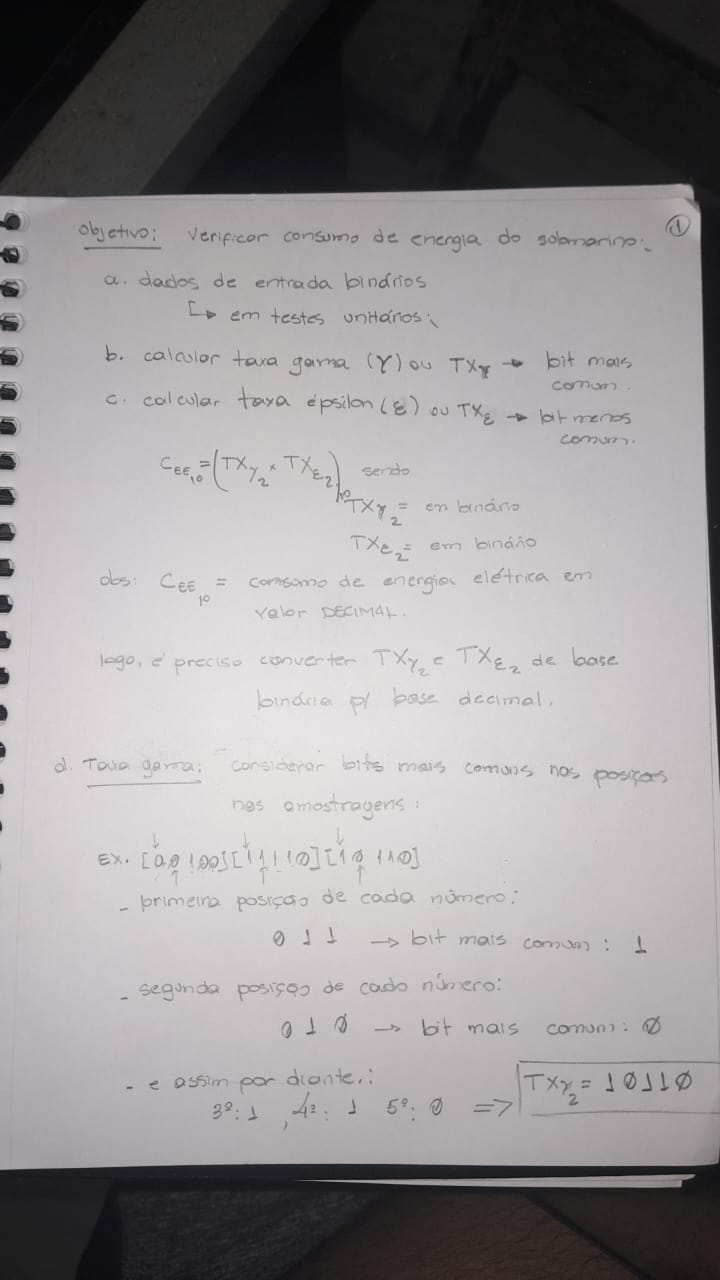 ①
Objetivo: Verificar consumo de energia do submarino:
a. dados de entrada binários
↳ em testes unitários;
b. calcular taxa gama (γ) ou TXγ → bit mais
comum.
c. calcular taxa épsilon (ε) ou TXε → bit menos
comum.
CEE₁₀ = (TXγ₂ × TXε₂)₁₀ sendo
TXγ₂ = em binário
TXε₂ = em binário
obs: CEE₁₀ = consumo de energia elétrica em
valor DECIMAL.
logo, é preciso converter TXγ₂ e TXε₂ de base
binária p/ base decimal.
d. Taxa gama: considerar bits mais comuns nas posições
nas amostragens:
EX. [00100][11110][10110]
- primeira posição de cada número:
0 1 1 → bit mais comum: 1
- segunda posição de cada número:
0 1 0 → bit mais comum: 0
- e assim por diante.:
3º: 1, 4º: 1 5º: 0 => TXγ₂ = 10110